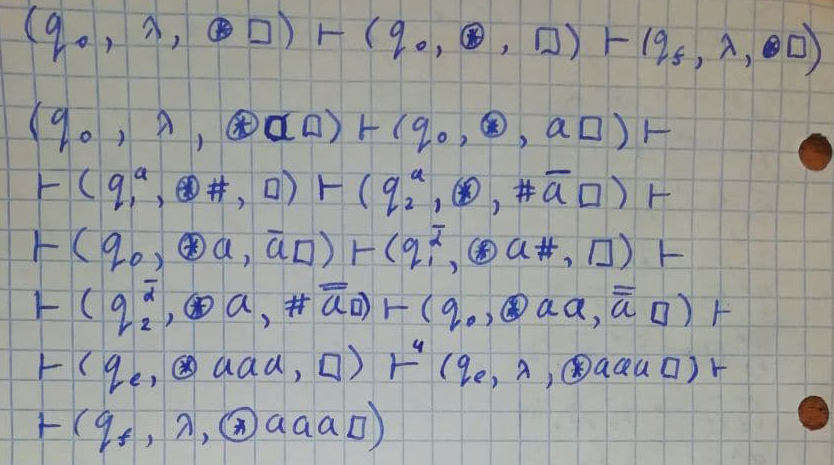 (q₀, λ, ⊛□) ⊢ (q₀, ⊛, □) ⊢ (q_f, λ, ⊛□)
(q₀, λ, ⊛a□) ⊢ (q₀, ⊛, a□) ⊢
⊢ (q₁ᵃ, ⊛#, □) ⊢ (q₂ᵃ, ⊛, #a̅□) ⊢
⊢ (q₀, ⊛a, a̅□) ⊢ (q₁^a̅, ⊛a#, □) ⊢
⊢ (q₂^a̅, ⊛a, #a̿□) ⊢ (q₀, ⊛aa, a̿□) ⊢
⊢ (qₑ, ⊛aaa, □) ⊢⁴ (qₑ, λ, ⊛aaa□) ⊢
⊢ (q_f, λ, ⊛aaa□)